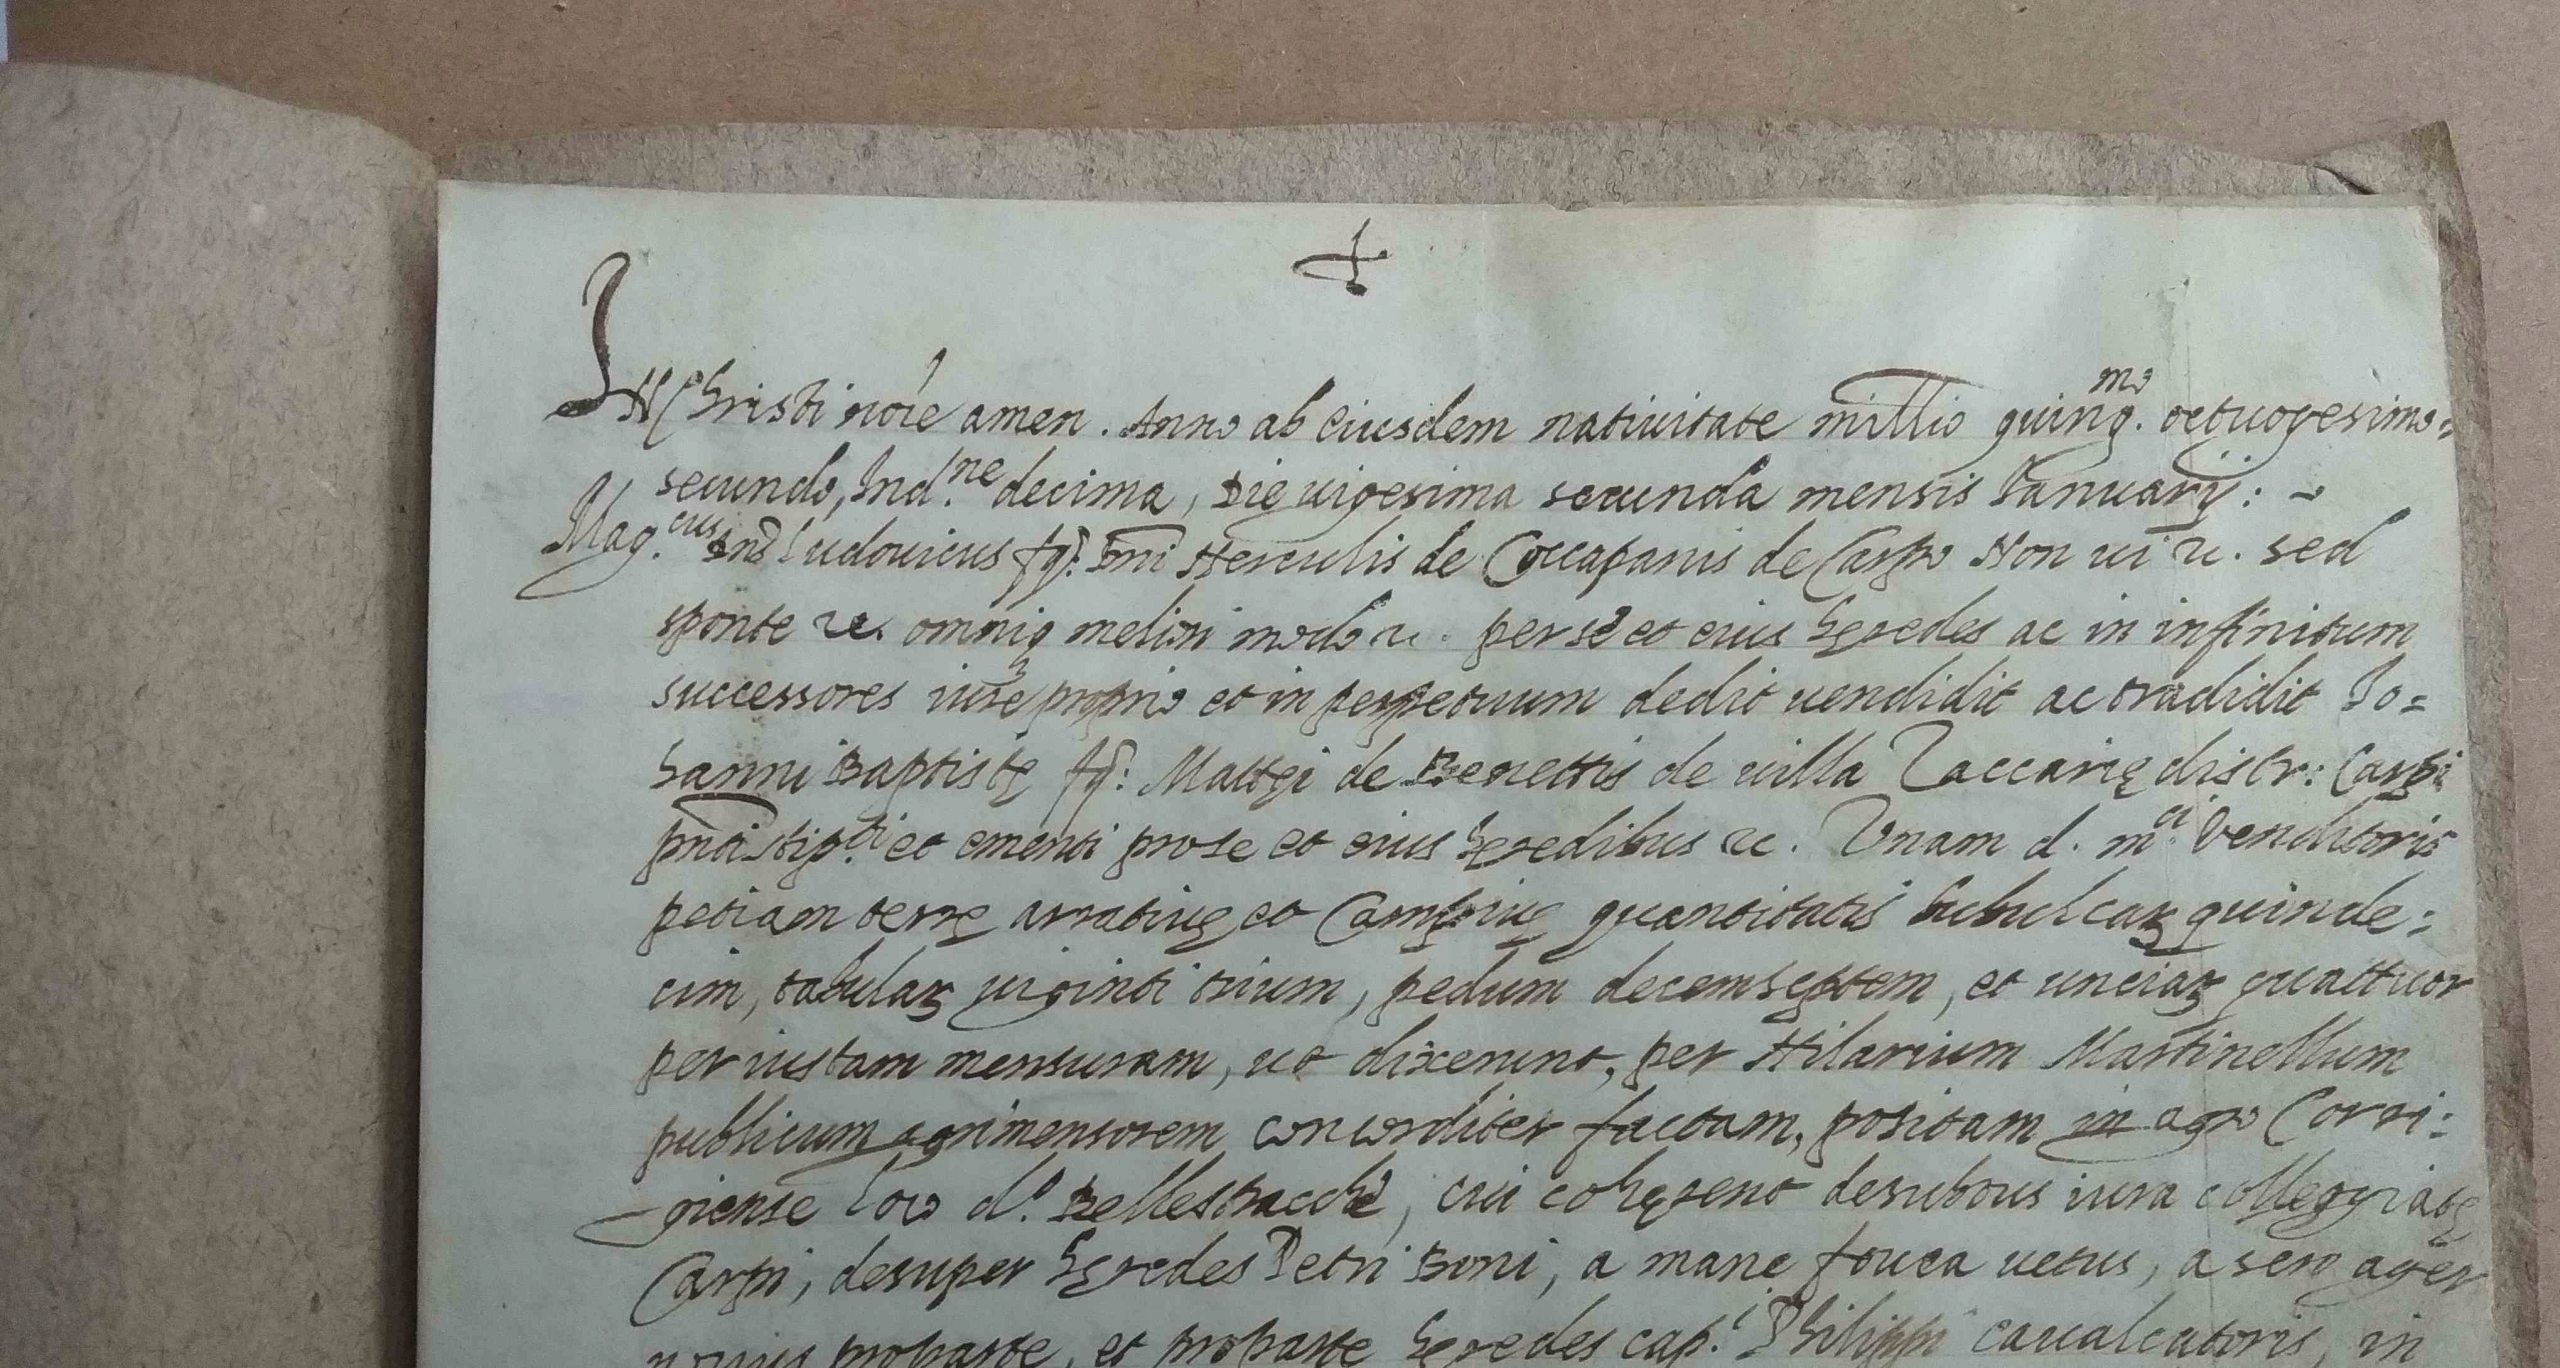 IN Christi no͞ie amen. Anno ab eiusdem natiuitate millio quing.mo octuogesimo=
secundo, Ind.ne decima, Die uigesima secunda mensis Januarij: ~
Mag.cus Dn͞s Ludouicus fq: Dn͞i Herculis de Coccapanis de Carpo Non ui &c. sed
sponte &c. omniq meliori modo &c. per se et eius hęredes ac in infinitum
successores iure proprio et in perpetuum dedit uendidit ac tradidit Jo=
hanni Baptistę fq: Mattęi de Benettis de uilla Zaccarię distr: Carpi
pn͞ti stip.ti et ementi pro se et eius hęredibus &c. Unam d. m.ci Venditoris
petiam terrę arratiuę et Campiuę quantitatis bubulcaꝝ quinde:
cim, tabulaꝝ uiginti trium, pedum decemseptem, et unciaꝝ quattuor
per iustam mensuram, ut dixerunt, per Hilarium Martinellum
publicum agrimensorem concorditer factam, positam in agro Corri:
giense loco d.o Bellestracche, cui cohęrent desubtus iura collegiatę
Carpi, desuper hęredes Petri Boni, a mane fouea uetus, a sero ager
nouus pro parte, et pro parte hęredes cap.i Philippi caualcatoris, in